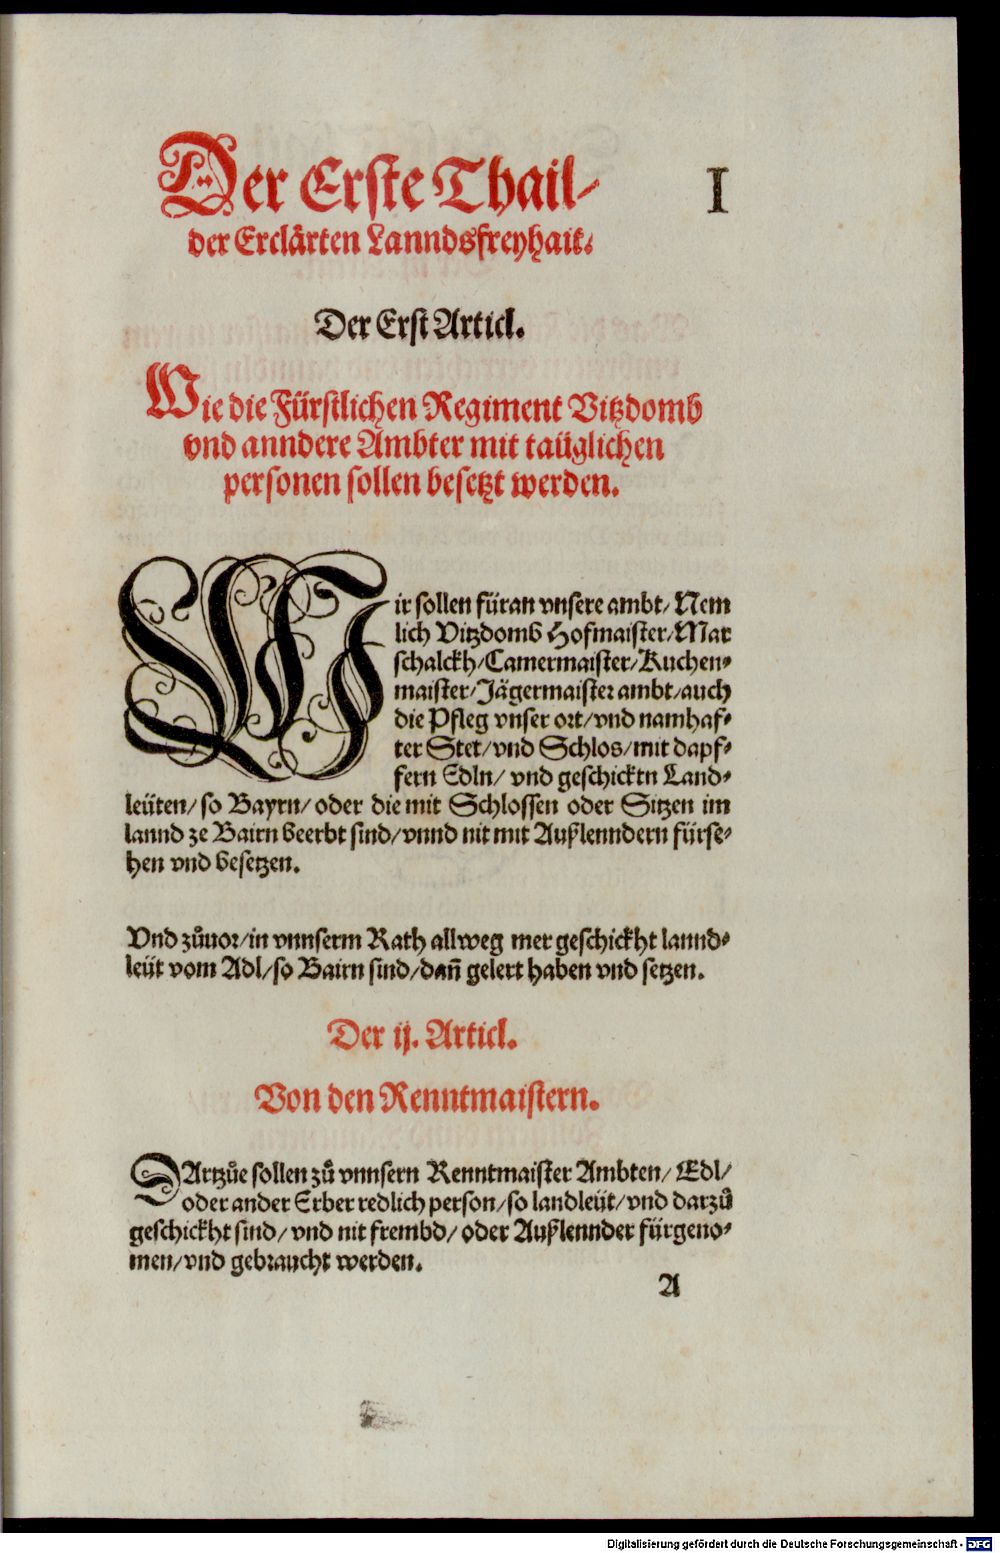 Der Erste Thail/
I
der Erclärten Lanndsfreyhait.
Der Erst Articl.
Wie die Fürstlichen Regiment Vitzdomb
vnd anndere Ambter mit taüglichen
personen sollen besetzt werden.
Wir sollen füran vnsere ambt/ Nem
lich Vitzdomb Hofmaister/Mar
schalckh/Camermaister/Kuchen-
maister/Jägermaister ambt/auch
die Pfleg vnser ort/vnd namhaf-
ter Stet/vnd Schlos/mit dapf-
fern Edln/ vnd geschicktn Land-
leüten/so Bayrn/oder die mit Schlossen oder Sitzen im
lannd ze Bairn beerbt sind/vnnd nit mit Außlenndern fürse-
hen vnd besetzen.
Vnd zůuor/in vnnserm Rath allweg mer geschickht lannd-
leüt vom Adl/so Bairn sind/dañ gelert haben vnd setzen.
Der ij. Articl.
Von den Renntmaistern.
DArtzůe sollen zů vnnsern Renntmaister Ambten/ Edl/
oder ander Erber redlich person/so landleüt/vnd darzů
geschickht sind/ vnd nit frembd/ oder Außlennder fürgeno-
men/vnd gebraucht werden.
A
Digitalisierung gefördert durch die Deutsche Forschungsgemeinschaft - DFG